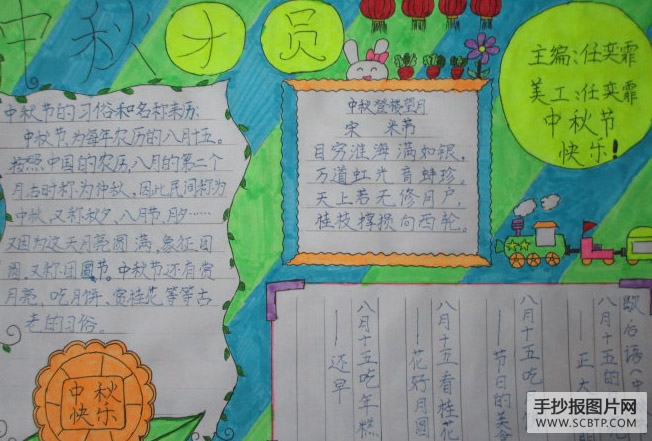 中秋才员
中秋节的习俗和名称来历:
中秋节,为每年农历的八月十五。
按照中国的农历,八月的第二个
月古时称为仲秋,因此民间称为
中秋,又称秋夕、八月节、月夕……
又因为这天月亮圆满,象征团
圆,又称团圆节。中秋节还有赏
月亮、吃月饼、赏桂花等等古
老的习俗。
中秋
快乐
中秋登楼望月
宋 米节
目穷淮海满如银,
万道虹光育蚌珍。
天上若无修月户,
桂枝撑损向西轮。
主编:任奕霏
美工:任奕霏
中秋节
快乐!
歇后语(中
八月十五的
——正大
八月十五吃
——节日的美食
八月十五看桂花
——花好月圆
八月十五吃年糕
——还早
手抄报图片网
WWW.SCBTP.COM